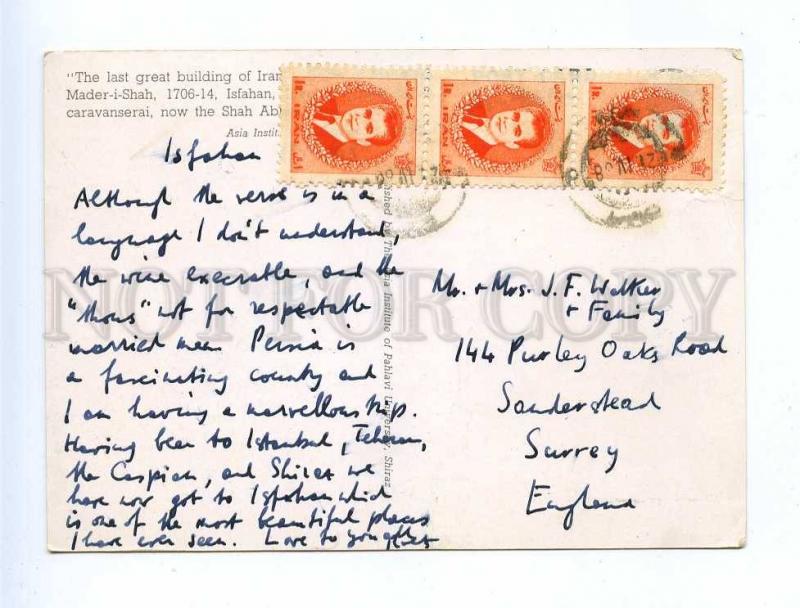 "The last great building of Iran
Mader-i-Shah, 1706-14, Isfahan,
caravanserai, now the Shah Ab
Asia Instit
1R. IRAN
1R. IRAN
1R. IRAN
Isfahan
Although the verse is in a
language I don't understand,
the wine execrable, and the
"thous" not for respectable
married men Persia is
a fascinating country and
I am having a marvellous trip.
Having been to Istanbul, Teheran,
the Caspian, and Shiraz we
have now got to Isfahan which
is one of the most beautiful places
I have ever seen. Love to you all
Institute of Pahlavi University, Shiraz
Mr. + Mrs. J. F. Walker
+ Family
144 Purley Oaks Road
Sanderstead
Surrey
England
NOT FOR COPY